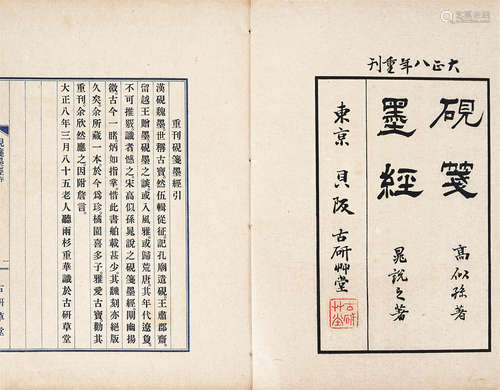 大正八年重刊
硯箋
高似孫著
墨經
晁説之著
東京 貝阪 古研艸堂
古研艸堂
重刊硯箋墨經引
漢硯魏墨世稱古寶然伍緝從征記孔廟遺硯王肅郡齋
留越王贈墨硯墨之談或入風雅或歸荒唐其年代遼敻
不可推覈識者憾之宋高似孫晁説之硯箋墨經闡幽揚
微古今一睹炳如指掌惜此書舶載甚少其飜刻亦絕版
久矣余所藏一本於今爲珍橘園喜多子雅愛古寶勸其
重刊余欣然應之因附詹言
大正八年三月八十五老人聽雨杉重華識於古研草堂
一
古研草堂